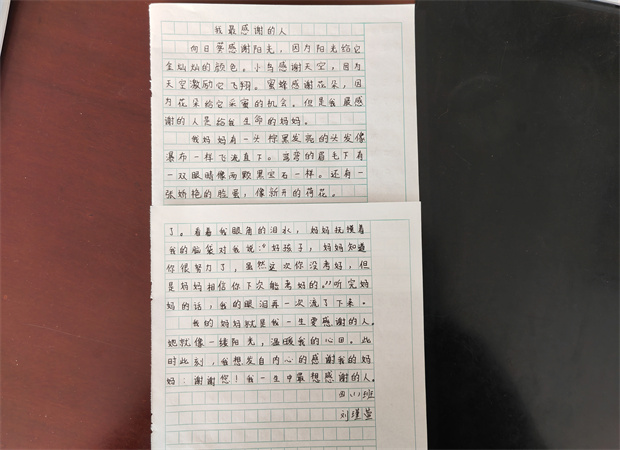 我最感谢的人
向日葵感谢阳光，因为阳光给它
金灿灿的颜色。小鸟感谢天空，因为
天空激励它飞翔。蜜蜂感谢花朵，因
为花朵给它采蜜的机会。但是我最感
谢的人是给我生命的妈妈。
我妈妈有一头棕黑发亮的头发像
瀑布一样飞流直下。弯弯的眉毛下有
一双眼睛像两颗黑宝石一样。还有一
张娇艳的脸蛋，像新开的荷花。
了。看着我眼角的泪水，妈妈抚摸着
我的脑袋对我说：“好孩子，妈妈知道
你很努力了，虽然这次你没考好，但
是妈妈相信你下次能考好的。”听完妈
妈的话，我的眼泪再一次流了下来。
我的妈妈就是我一生要感谢的人。
她就像一缕阳光，温暖我的心田。此
时此刻，我想发自内心的感谢我的妈
妈：谢谢您！我一生中最想感谢的人。
四（1）班
刘瑾萱